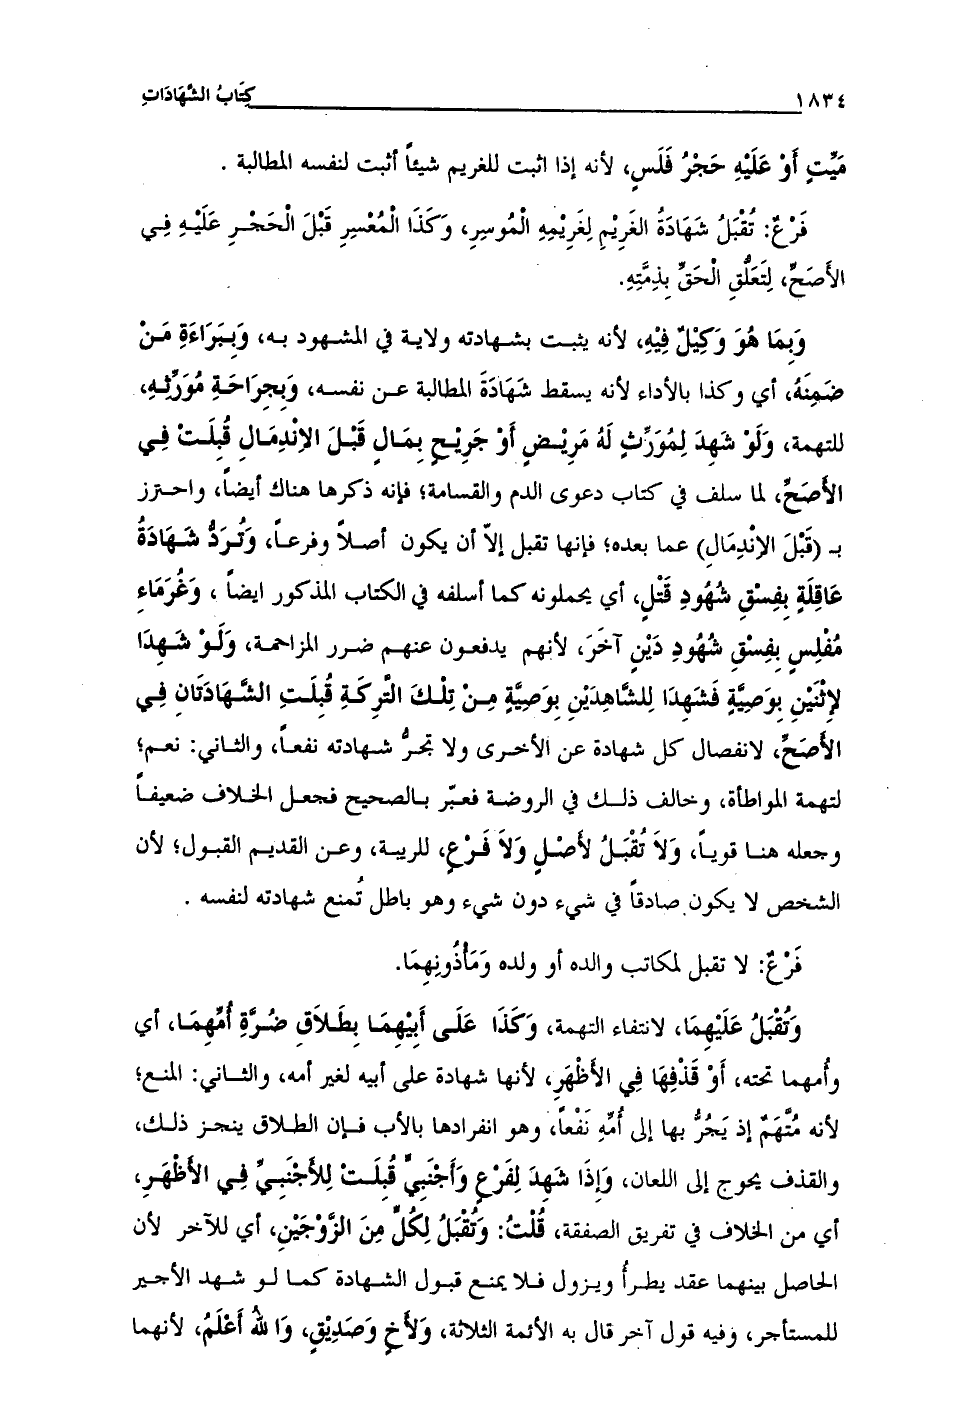 ١٨٣٤ كِتَابُ الشَّهَادَاتِ
مَيِّتٍ أَوْ عَلَيْهِ حَجْرُ فَلَسٍ، لأنه إذا اثبت للغريم شيئاً أثبت لنفسه المطالبة .
فَرْعٌ: تُقْبَلُ شَهَادَةُ الغَرِيْمِ لِغَرِيْمِهِ الْمُوسِرِ، وَكَذَا الْمُعْسِرِ قَبْلَ الْحَجْرِ عَلَيْهِ فِي
الأَصَحِّ، لِتَعَلُّقِ الْحَقِّ بِذِمَّتِهِ.
وَبِمَا هُوَ وَكِيْلٌ فِيْهِ، لأنه يثبت بشهادته ولاية في المشهود به، وَبِبَرَاءَةِ مَنْ
ضَمِنَهُ، أي وكذا بالأداء لأنه يسقط شَهَادَةَ المطالبة عن نفسه، وَبِجِرَاحَةِ مُوَرِّثِهِ،
للتهمة، وَلَوْ شَهِدَ لِمُوَرِّثٍ لَهُ مَرِيْضٍ أَوْ جَرِيْحٍ بِمَالٍ قَبْلَ الإِنْدِمَالِ قُبِلَتْ فِي
الأَصَحِّ، لما سلف في كتاب دعوى الدم والقسامة؛ فإنه ذكرها هناك أيضاً، واحترز
بـ (قَبْلَ الإِنْدِمَالِ) عما بعده؛ فإنها تقبل إلاّ أن يكون أصلاً وفرعاً، وَتُرَدُّ شَهَادَةُ
عَاقِلَةٍ بِفِسْقِ شُهُودِ قَتْلٍ، أي يحملونه كما أسلفه في الكتاب المذكور ايضاً ، وَغُرَمَاءِ
مُفْلِسٍ بِفِسْقِ شُهُودِ دَيْنٍ آخَرَ، لأنهم يدفعون عنهم ضرر المزاحمة، وَلَوْ شَهِدَا
لإِثْنَيْنِ بِوَصِيَّةٍ فَشَهِدَا لِلشَّاهِدَيْنِ بِوَصِيَّةٍ مِنْ تِلْكَ التَّرِكَةِ قُبِلَتِ الشَّهَادَتَانِ فِي
الأَصَحِّ، لانفصال كل شهادة عن الأخرى ولا تجرُّ شهادته نفعاً، والثاني: نعم؛
لتهمة المواطأة، وخالف ذلك في الروضة فعبّر بالصحيح فجعل الخلاف ضعيفاً
وجعله هنا قوياً، وَلاَ تُقْبَلُ لأَصْلٍ وَلاَ فَرْعٍ، للريبة، وعن القديم القبول؛ لأن
الشخص لا يكون صادقاً في شيء دون شيء وهو باطل تُمنع شهادته لنفسه .
فَرْعٌ: لا تقبل لمكاتب والده أو ولده وَمَأْذُونِهِمَا.
وَتُقْبَلُ عَلَيْهِمَا، لانتفاء التهمة، وَكَذَا عَلَى أَبِيْهِمَا بِطَلاَقِ ضُرَّةِ أُمِّهِمَا، أي
وأُمهما تحته، أَوْ قَذْفِهَا فِي الأَظْهَرِ، لأنها شهادة على أبيه لغير أمه، والثاني: المنع؛
لأنه مُتَّهَمٌ إذ يَجُرُّ بها إلى أُمِّهِ نَفْعاً، وهو انفرادها بالأب فإن الطلاق ينجز ذلك،
والقذف يحوج إلى اللعان، وَإِذَا شَهِدَ لِفَرْعٍ وَأَجْنَبِيٍّ قُبِلَتْ لِلأَجْنَبِيِّ فِي الأَظْهَرِ،
أي من الخلاف في تفريق الصفقة، قُلْتُ: وَتُقْبَلُ لِكُلٍّ مِنَ الزَّوْجَيْنِ، أي للآخر لأن
الحاصل بينهما عقد يطرأُ ويزول فلا يمنع قبول الشهادة كما لو شهد الأجير
للمستأجر، وفيه قول آخر قال به الأئمة الثلاثة، وَلأَخٍ وَصَدِيْقٍ، وَا للهُ أَعْلَمُ، لأنهما